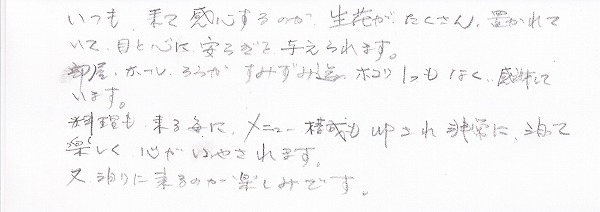 いつも 来て感心するのが、生花が たくさん 置かれて
いて、目と心に 安らぎを 与えられます。
部屋、ホール、ろうか すみずみ迄、ホコリ1つもなく、感謝して
います。
料理も 来る毎に、メニュー構成も upされ 非常に、泊って
楽しく 心がいやされます。
又 泊りに来るのが楽しみです。